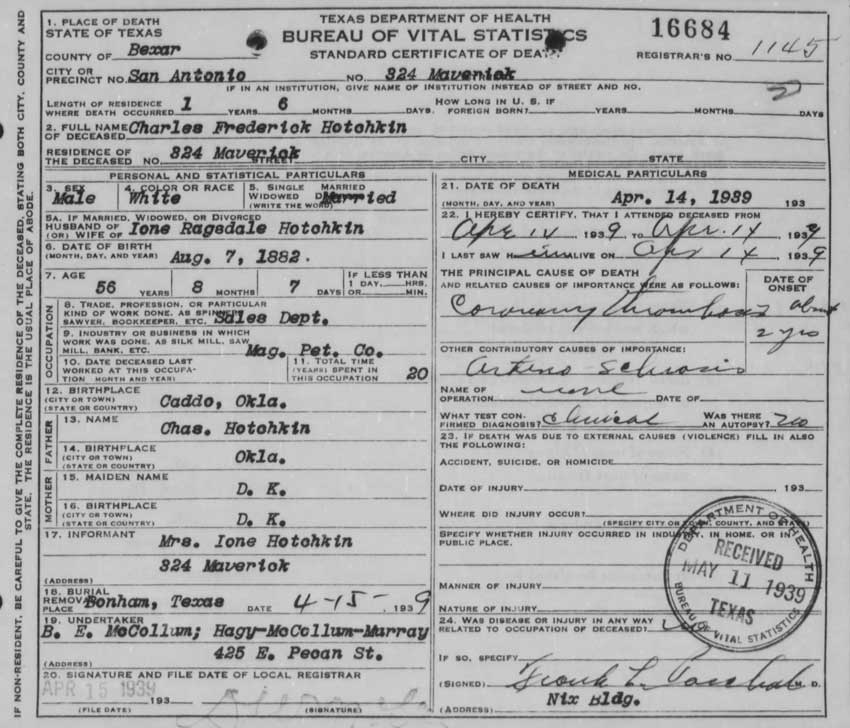 TEXAS DEPARTMENT OF HEALTH
BUREAU OF VITAL STATISTICS
STANDARD CERTIFICATE OF DEATH
16684
REGISTRAR'S NO. 1145
1. PLACE OF DEATH
STATE OF TEXAS
COUNTY OF Bexar
CITY OR PRECINCT NO. San Antonio NO. 324 Maverick
IF IN AN INSTITUTION, GIVE NAME OF INSTITUTION INSTEAD OF STREET AND NO.
LENGTH OF RESIDENCE WHERE DEATH OCCURRED 1 YEARS 6 MONTHS DAYS. HOW LONG IN U. S. IF FOREIGN BORN? YEARS MONTHS DAYS
2. FULL NAME OF DECEASED Charles Frederick Hotchkin
RESIDENCE OF THE DECEASED NO. 324 Maverick STREET CITY STATE
PERSONAL AND STATISTICAL PARTICULARS
3. SEX Male
4. COLOR OR RACE White
5. SINGLE MARRIED WIDOWED (WRITE THE WORD) Married
5A. IF MARRIED, WIDOWED, OR DIVORCED
HUSBAND OF (OR) WIFE OF Ione Ragsdale Hotchkin
6. DATE OF BIRTH
(MONTH, DAY, AND YEAR) Aug. 7, 1882.
7. AGE 56 YEARS 8 MONTHS 7 DAYS IF LESS THAN 1 DAY, HRS. OR MIN.
OCCUPATION
8. TRADE, PROFESSION, OR PARTICULAR
KIND OF WORK DONE, AS SPINNER
SAWYER, BOOKKEEPER, ETC. Sales Dept.
9. INDUSTRY OR BUSINESS IN WHICH
WORK WAS DONE, AS SILK MILL, SAW
MILL, BANK, ETC. Mag. Pet. Co.
10. DATE DECEASED LAST
WORKED AT THIS OCCUPATION MONTH AND YEAR)
11. TOTAL TIME
(YEARS) SPENT IN
THIS OCCUPATION 20
12. BIRTHPLACE
(CITY OR TOWN)
(STATE OR COUNTRY) Caddo, Okla.
FATHER
13. NAME Chas. Hotchkin
14. BIRTHPLACE
(CITY OR TOWN)
(STATE OR COUNTRY) Okla.
MOTHER
15. MAIDEN NAME D. K.
16. BIRTHPLACE
(CITY OR TOWN)
(STATE OR COUNTRY) D. K.
17. INFORMANT Mrs. Ione Hotchkin
324 Maverick
(ADDRESS)
18. BURIAL
REMOVAL
PLACE Bonham, Texas DATE 4-15- 1939
19. UNDERTAKER
B. E. McCollum; Hagy-McCollum-Murray
425 E. Pecan St.
(ADDRESS)
20. SIGNATURE AND FILE DATE OF LOCAL REGISTRAR
APR 15 1939 193
(FILE DATE) (SIGNATURE)
MEDICAL PARTICULARS
21. DATE OF DEATH
(MONTH, DAY, AND YEAR) Apr. 14, 1939 193
22. I HEREBY CERTIFY, THAT I ATTENDED DECEASED FROM
Apr 14 1939 TO Apr. 14 1939
I LAST SAW HIM ALIVE ON Apr 14 1939
THE PRINCIPAL CAUSE OF DEATH
AND RELATED CAUSES OF IMPORTANCE WERE AS FOLLOWS:
DATE OF ONSET
Coronary Thrombosis about
2 yrs
OTHER CONTRIBUTORY CAUSES OF IMPORTANCE:
Arterio Sclerosis
NAME OF OPERATION none DATE OF
WHAT TEST CONFIRMED DIAGNOSIS? Clinical WAS THERE AN AUTOPSY? no
23. IF DEATH WAS DUE TO EXTERNAL CAUSES (VIOLENCE) FILL IN ALSO
THE FOLLOWING:
ACCIDENT, SUICIDE, OR HOMICIDE
DATE OF INJURY 193
WHERE DID INJURY OCCUR?
(SPECIFY CITY OR TOWN, COUNTY, AND STATE)
SPECIFY WHETHER INJURY OCCURRED IN INDUSTRY, IN HOME, OR IN
PUBLIC PLACE.
MANNER OF INJURY
NATURE OF INJURY
24. WAS DISEASE OR INJURY IN ANY WAY
RELATED TO OCCUPATION OF DECEASED?
IF SO, SPECIFY
(SIGNED) Frank L. Paschal M. D.
(ADDRESS) Nix Bldg.
DEPARTMENT OF HEALTH
RECEIVED
MAY 11 1939
TEXAS
BUREAU OF VITAL STATISTICS
IF NON-RESIDENT, BE CAREFUL TO GIVE THE COMPLETE RESIDENCE OF THE DECEASED, STATING BOTH CITY, COUNTY AND
STATE. THE RESIDENCE IS THE USUAL PLACE OF ABODE.